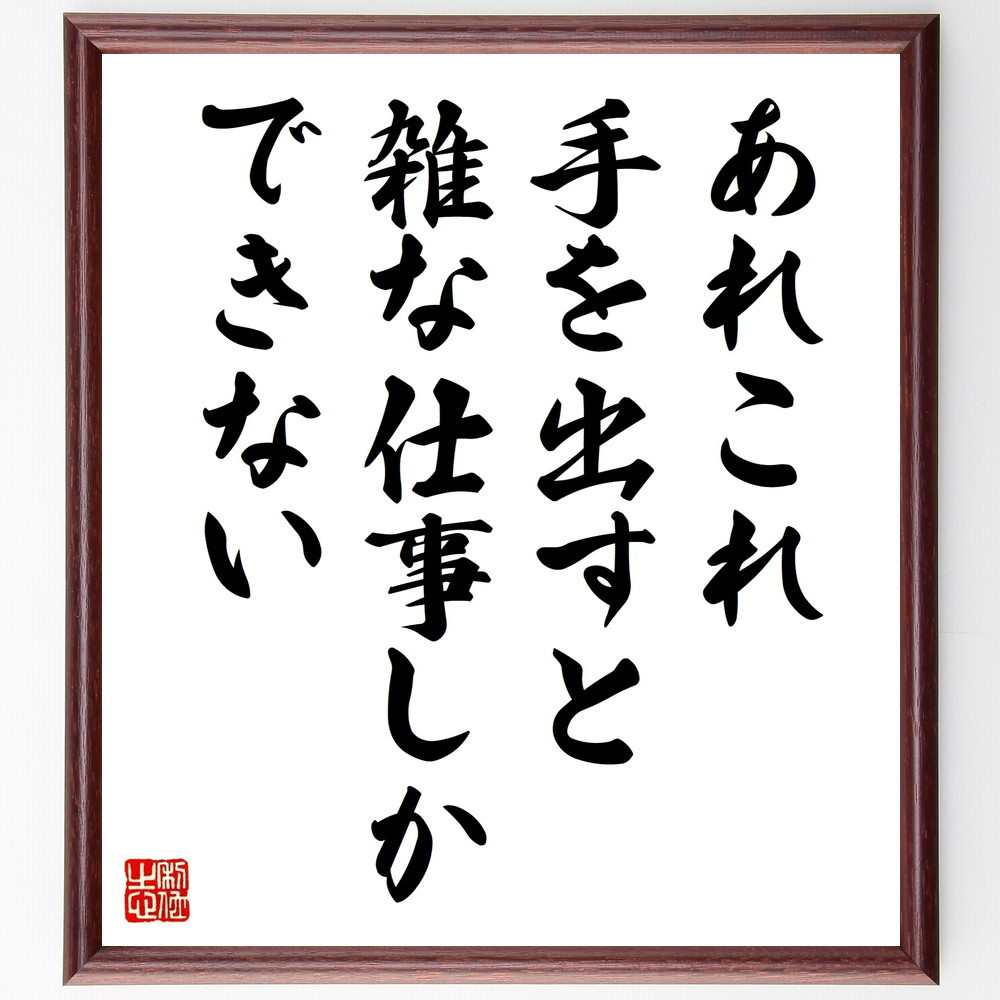 あれこれ
手を出すと
雑な仕事しか
できない